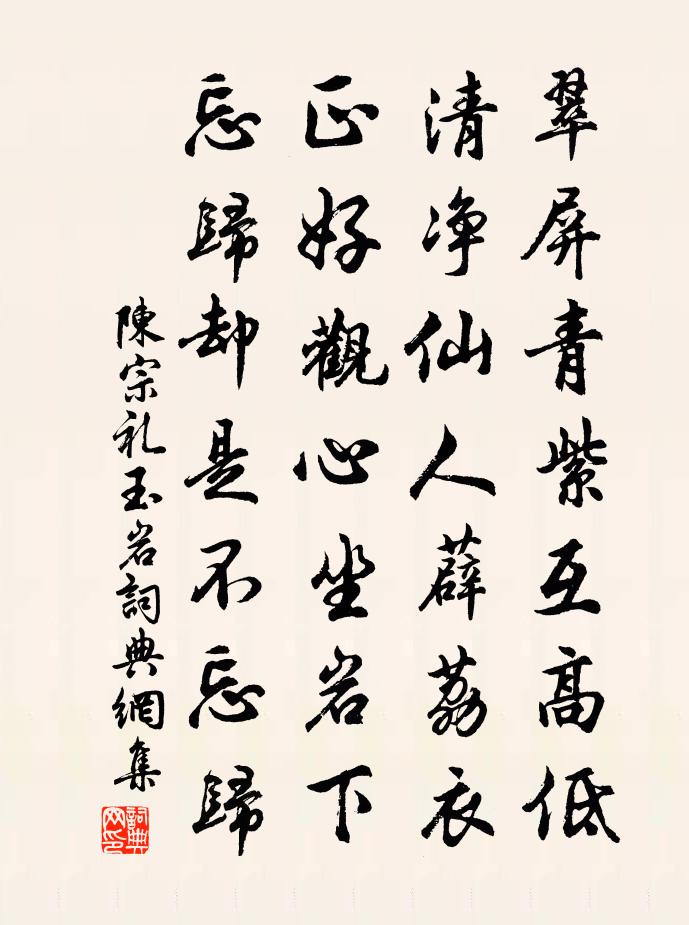 翠屏青紫互高低
清净仙人薜荔衣
正好觀心坐岩下
忘歸却是不忘歸
陳宗礼玉岩詞典網集
詞典网印